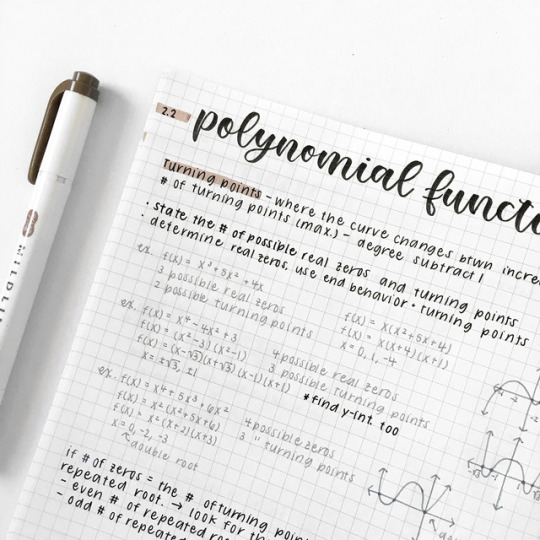 2.2
polynomial functo
Turning points - where the curve changes btwn incre
# of turning points (max.) - degree subtract 1
• state the # of possible real zeros and turning points
• determine real zeros, use end behavior • turning points
ex. f(x) = x³ + 5x² + 4x
3 possible real zeros
2 possible turning points
f(x) = x(x²+5x+4)
f(x) = x(x+4)(x+1)
x = 0, 1, -4
ex. f(x) = x⁴ - 4x² + 3
f(x) = (x²-3)(x²-1)
f(x) = (x-√3)(x+√3)(x-1)(x+1)
x = ±√3, ±1
4 possible real zeros
3 possible turning points
*find y-int. too
ex. f(x) = x⁴ + 5x³ + 6x²
f(x) = x²(x²+5x+6)
f(x) = x²(x+2)(x+3)
x = 0, -2, -3
double root
4 possible zeros
3 " turning points
if # of zeros = the # of turning poin
repeated root. → look for th
- even # of repeated roo
- odd # of repeated
MILDLI